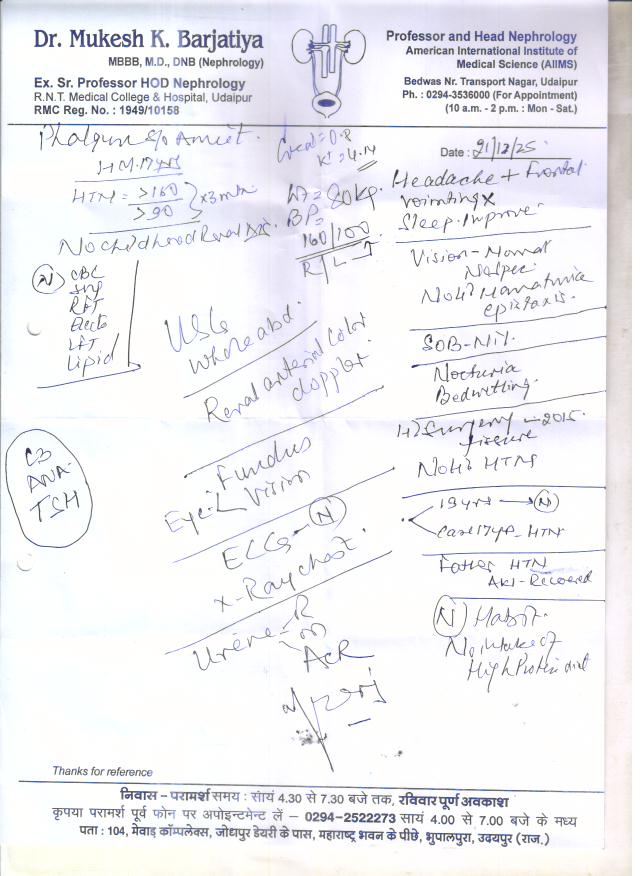 Dr. Mukesh K. Barjatiya
MBBB, M.D., DNB (Nephrology)
Ex. Sr. Professor HOD Nephrology
R.N.T. Medical College & Hospital, Udaipur
RMC Reg. No. : 1949/10158
Professor and Head Nephrology
American International Institute of
Medical Science (AIIMS)
Bedwas Nr. Transport Nagar, Udaipur
Ph. : 0294-3536000 (For Appointment)
(10 a.m. - 2 p.m. : Mon - Sat.)
Date : 21/12/25
Phalgun s/o Amit.
17 yrs
HTN = >160
>90
x3mth
No childhood Renal
Creat = 0.8
K+ = 4.14
Wt = 80 kg.
BP =
160/100
R/L
(N) CBC
RFT
Electo
LFT
Lipid
C3
ANA
TSH
USG
whole abd.
Renal arterial color
doppler
Fundus
Eye
Vision
ECG - (N)
x-Ray chest.
Urine - R
m
ACR
Headache + Frontal
vomiting x
Sleep. Improve
Vision - Normal
No Hematuria
epixtaxis.
SOB - Nil.
Nocturia
Bedwetting.
H/o Surgery in 2015
fissure
No HTN
19 yrs → (N)
Case 17 yr - HTN
Father HTN
AKI - Recovered
(N) Habit.
No intake of
High Protein diet
Thanks for reference
निवास – परामर्श समय : सायं 4.30 से 7.30 बजे तक, रविवार पूर्ण अवकाश
कृपया परामर्श पूर्व फोन पर अपोइन्टमेन्ट लें – 0294-2522273 सायं 4.00 से 7.00 बजे के मध्य
पता : 104, मेवाड़ कॉम्पलेक्स, जोधपुर डेयरी के पास, महाराष्ट्र भवन के पीछे, भुपालपुरा, उदयपुर (राज.)